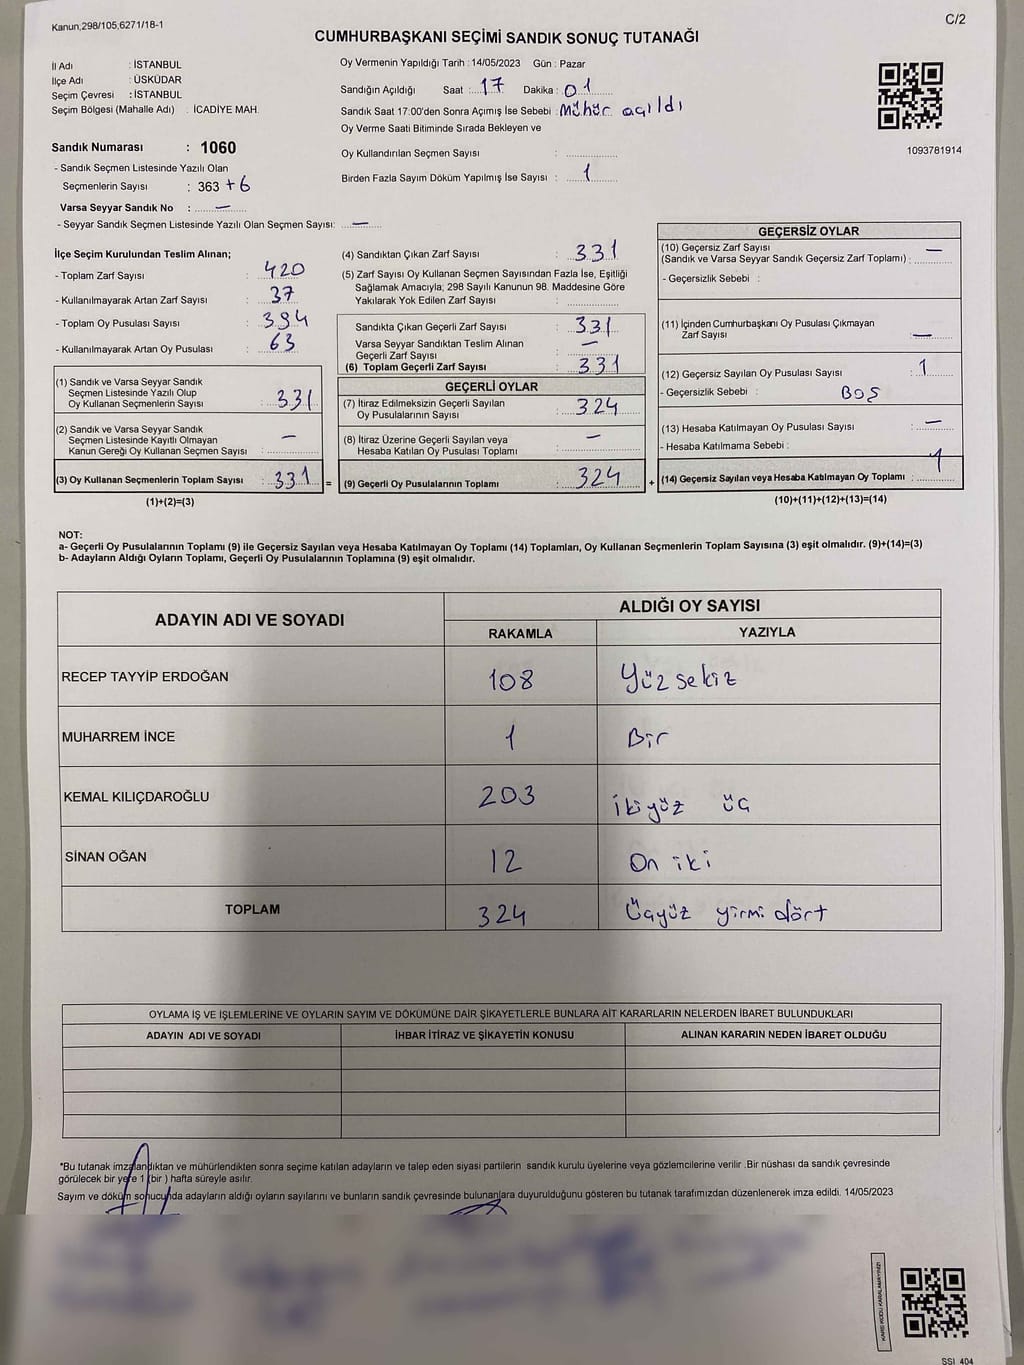 Kanun,298/105,6271/18-1
C/2
CUMHURBAŞKANI SEÇİMİ SANDIK SONUÇ TUTANAĞI
İl Adı : İSTANBUL
İlçe Adı : ÜSKÜDAR
Seçim Çevresi : İSTANBUL
Seçim Bölgesi (Mahalle Adı) : İCADİYE MAH.
Oy Vermenin Yapıldığı Tarih : 14/05/2023 Gün : Pazar
Sandığın Açıldığı Saat : 17 Dakika : 01
Sandık Saat 17:00'den Sonra Açımış İse Sebebi : Mühür açıldı
Oy Verme Saati Bitiminde Sırada Bekleyen ve
Oy Kullandırılan Seçmen Sayısı :
Birden Fazla Sayım Döküm Yapılmış İse Sayısı : 1
1093781914
Sandık Numarası : 1060
- Sandık Seçmen Listesinde Yazılı Olan
Seçmenlerin Sayısı : 363 + 6
Varsa Seyyar Sandık No : —
- Seyyar Sandık Seçmen Listesinde Yazılı Olan Seçmen Sayısı: —
İlçe Seçim Kurulundan Teslim Alınan;
- Toplam Zarf Sayısı : 420
- Kullanılmayarak Artan Zarf Sayısı : 37
- Toplam Oy Pusulası Sayısı : 394
- Kullanılmayarak Artan Oy Pusulası : 63
(1) Sandık ve Varsa Seyyar Sandık
Seçmen Listesinde Yazılı Olup
Oy Kullanan Seçmenlerin Sayısı : 331
(2) Sandık ve Varsa Seyyar Sandık
Seçmen Listesinde Kayıtlı Olmayan
Kanun Gereği Oy Kullanan Seçmen Sayısı : —
(3) Oy Kullanan Seçmenlerin Toplam Sayısı : 331 =
(1)+(2)=(3)
(4) Sandıktan Çıkan Zarf Sayısı : 331
(5) Zarf Sayısı Oy Kullanan Seçmen Sayısından Fazla İse, Eşitliği
Sağlamak Amacıyla; 298 Sayılı Kanunun 98. Maddesine Göre
Yakılarak Yok Edilen Zarf Sayısı :
Sandıkta Çıkan Geçerli Zarf Sayısı : 331
Varsa Seyyar Sandıktan Teslim Alınan
Geçerli Zarf Sayısı : —
(6) Toplam Geçerli Zarf Sayısı : 331
GEÇERLİ OYLAR
(7) İtiraz Edilmeksizin Geçerli Sayılan
Oy Pusulalarının Sayısı : 324
(8) İtiraz Üzerine Geçerli Sayılan veya
Hesaba Katılan Oy Pusulası Toplamı : —
(9) Geçerli Oy Pusulalarının Toplamı : 324 +
GEÇERSİZ OYLAR
(10) Geçersiz Zarf Sayısı —
(Sandık ve Varsa Seyyar Sandık Geçersiz Zarf Toplamı) :
- Geçersizlik Sebebi :
(11) İçinden Cumhurbaşkanı Oy Pusulası Çıkmayan
Zarf Sayısı : —
(12) Geçersiz Sayılan Oy Pusulası Sayısı : 1
- Geçersizlik Sebebi : BOŞ
(13) Hesaba Katılmayan Oy Pusulası Sayısı : —
- Hesaba Katılmama Sebebi :
(14) Geçersiz Sayılan veya Hesaba Katılmayan Oy Toplamı : 1
(10)+(11)+(12)+(13)=(14)
NOT:
a- Geçerli Oy Pusulalarının Toplamı (9) ile Geçersiz Sayılan veya Hesaba Katılmayan Oy Toplamı (14) Toplamları, Oy Kullanan Seçmenlerin Toplam Sayısına (3) eşit olmalıdır. (9)+(14)=(3)
b- Adayların Aldığı Oyların Toplamı, Geçerli Oy Pusulalarının Toplamına (9) eşit olmalıdır.
ADAYIN ADI VE SOYADI
ALDIĞI OY SAYISI
RAKAMLA YAZIYLA
RECEP TAYYİP ERDOĞAN 108 Yüz sekiz
MUHARREM İNCE 1 Bir
KEMAL KILIÇDAROĞLU 203 İkiyüz üç
SİNAN OĞAN 12 On iki
TOPLAM 324 Üçyüz yirmi dört
OYLAMA İŞ VE İŞLEMLERİNE VE OYLARIN SAYIM VE DÖKÜMÜNE DAİR ŞİKAYETLERLE BUNLARA AİT KARARLARIN NELERDEN İBARET BULUNDUKLARI
ADAYIN ADI VE SOYADI İHBAR İTİRAZ VE ŞİKAYETİN KONUSU ALINAN KARARIN NEDEN İBARET OLDUĞU
*Bu tutanak imzalandıktan ve mühürlendikten sonra seçime katılan adayların ve talep eden siyasi partilerin sandık kurulu üyelerine veya gözlemcilerine verilir .Bir nüshası da sandık çevresinde
görülecek bir yere 1 (bir ) hafta süreyle asılır.
Sayım ve döküm sonucunda adayların aldığı oyların sayılarını ve bunların sandık çevresinde bulunanlara duyurulduğunu gösteren bu tutanak tarafımızdan düzenlenerek imza edildi. 14/05/2023
KARE KODU KARALAMAYINIZ!
SSI_404